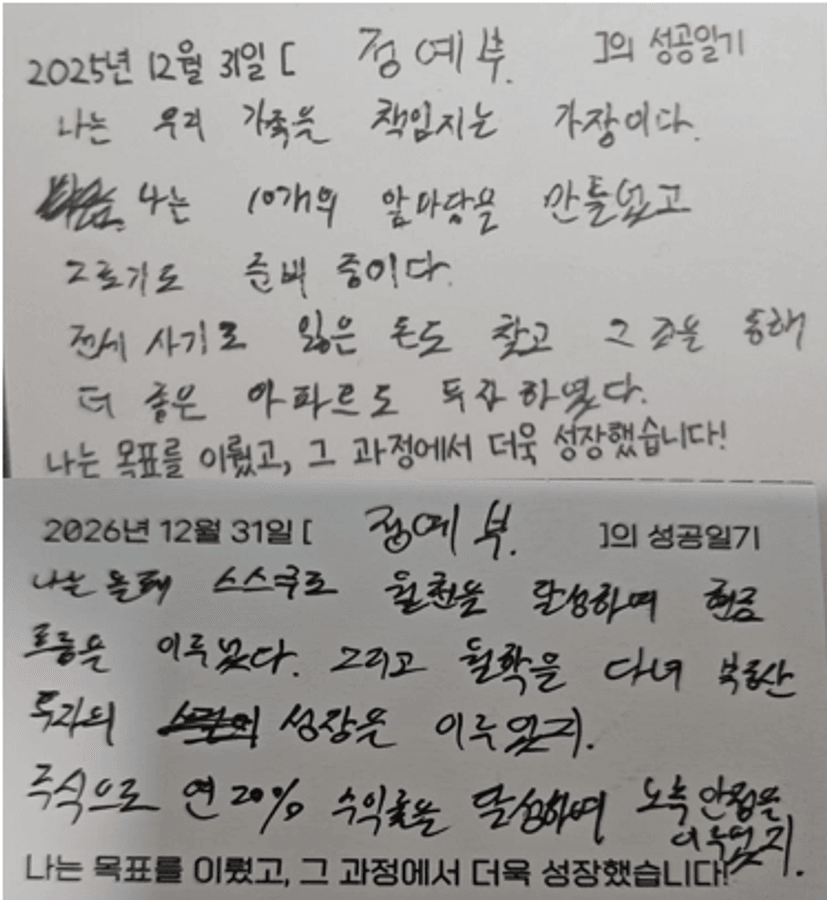 2025년 12월 31일 [ 정예부. ]의 성공일기
나는 우리 가족을 책임지는 가장이다.
나는 10개의 앞마당을 만들었고
그로기도 준비 중이다.
전세 사기로 잃은 돈도 찾고 그 돈을 통해
더 좋은 아파트도 투자하였다.
나는 목표를 이뤘고, 그 과정에서 더욱 성장했습니다!
2026년 12월 31일 [ 정예부. ]의 성공일기
나는 올해 스스쿠로 월천을 달성하며 현금
흐름을 이루었다. 그리고 월학을 다녀 부동산
투자의 성장을 이루었지.
주식으로 연 20% 수익률을 달성하며 노후 안정을
이루었지.
나는 목표를 이뤘고, 그 과정에서 더욱 성장했습니다!